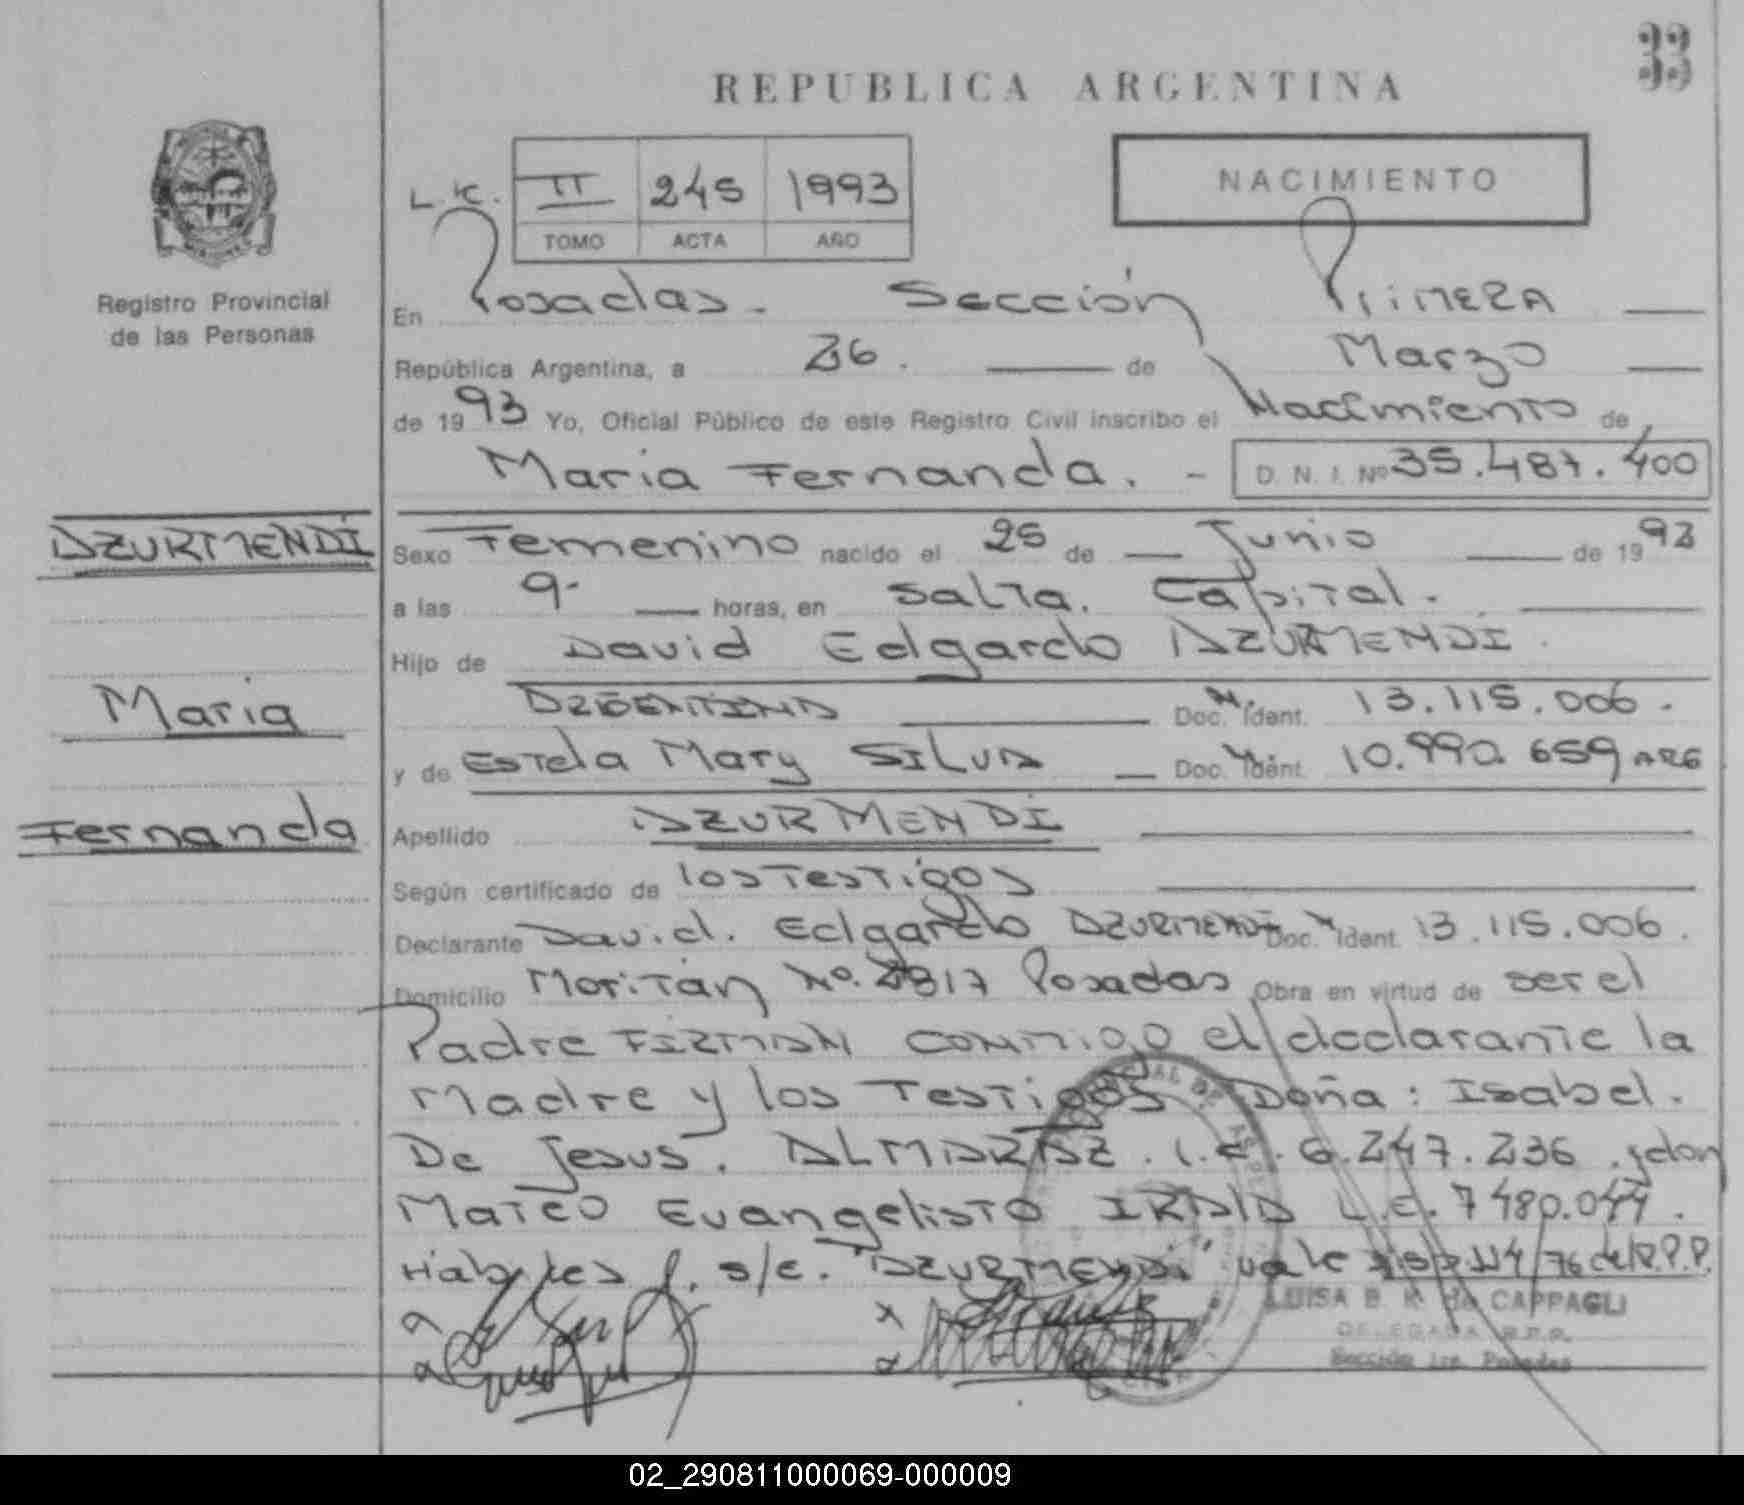 33
REPUBLICA ARGENTINA
L.C. II 245 1993
TOMO ACTA AÑO
NACIMIENTO
Registro Provincial
de las Personas
En Posadas - Sección Primera
República Argentina, a 26. de Marzo
de 1993 Yo, Oficial Público de este Registro Civil inscribo el Nacimiento de
Maria Fernanda. - D. N. I. Nº 35.487.400
AZURMENDI
Sexo Femenino nacido el 25 de Junio de 1992
a las 9- horas, en Salta. Capital.
Hijo de David Edgardo AZURMENDI.
Maria
ARGENTINA Doc. Ident. 13.115.006.
y de Estela Mary SILVA Doc. Ident. 10.990.659 ARG
Fernanda
Apellido AZURMENDI
Según certificado de los Testigos
Declarante David. Edgardo AZURMENDI Doc. Ident. 13.115.006.
Domicilio Moritán Nº. 2817 Posadas Obra en virtud de ser el
Padre FIRMAN conmigo el declarante la
Madre y los Testigos Doña: Isabel.
De Jesus. ALMARAZ. L.C. 6.247.236 y don
Mateo Evangelisto IRALA L.E. 7480.044.
Hábiles s/e. "AZURMENDI" vale 114/76 del R.P.P.
LUISA B. K. de CAPPAGLI
DELEGADA R.P.P.
Sección 1ra. Posadas
02_290811000069-000009